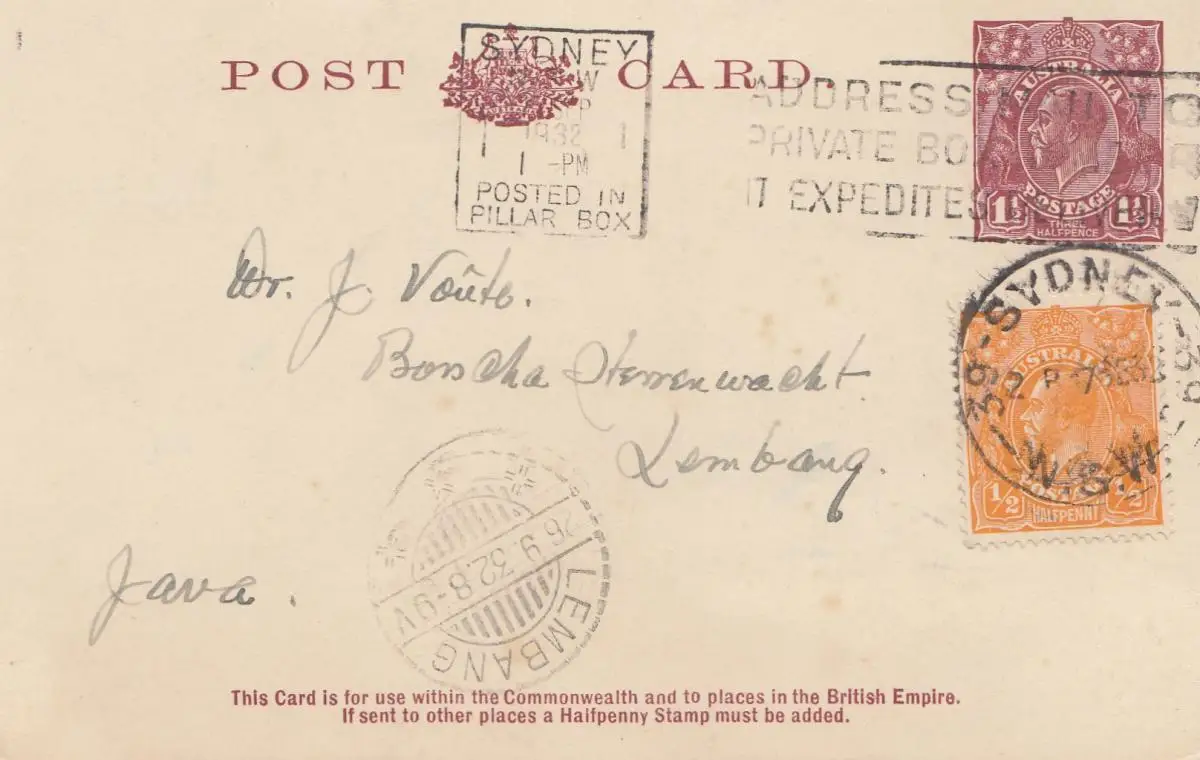 POST CARD.
SYDNEY
1932
1 -PM
POSTED IN
PILLAR BOX
ADDRESS TO
PRIVATE BO
IT EXPEDITES
AUSTRALIA
POSTAGE
1½ 1½
THREE
HALFPENCE
SYDNEY
N.S.W
AUSTRALIA
POSTAGE
½ ½
HALFPENNY
Dr. J. Voûte.
Bosscha Sterrenwacht
Lembang.
Java.
26.9.32.8-9V
LEMBANG
This Card is for use within the Commonwealth and to places in the British Empire.
If sent to other places a Halfpenny Stamp must be added.